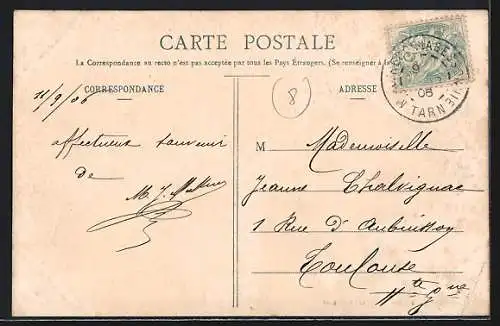 CARTE POSTALE
La Correspondance au recto n'est pas acceptée par tous les Pays Étrangers. (Se renseigner à la
CORRESPONDANCE
ADRESSE
11/9/06
8
affectueux souvenir
de
M. J.
M Mademoiselle
Jeanne Chalvignac
1 Rue d'Aubuisson
Toulouse
Hte Gne
TARN